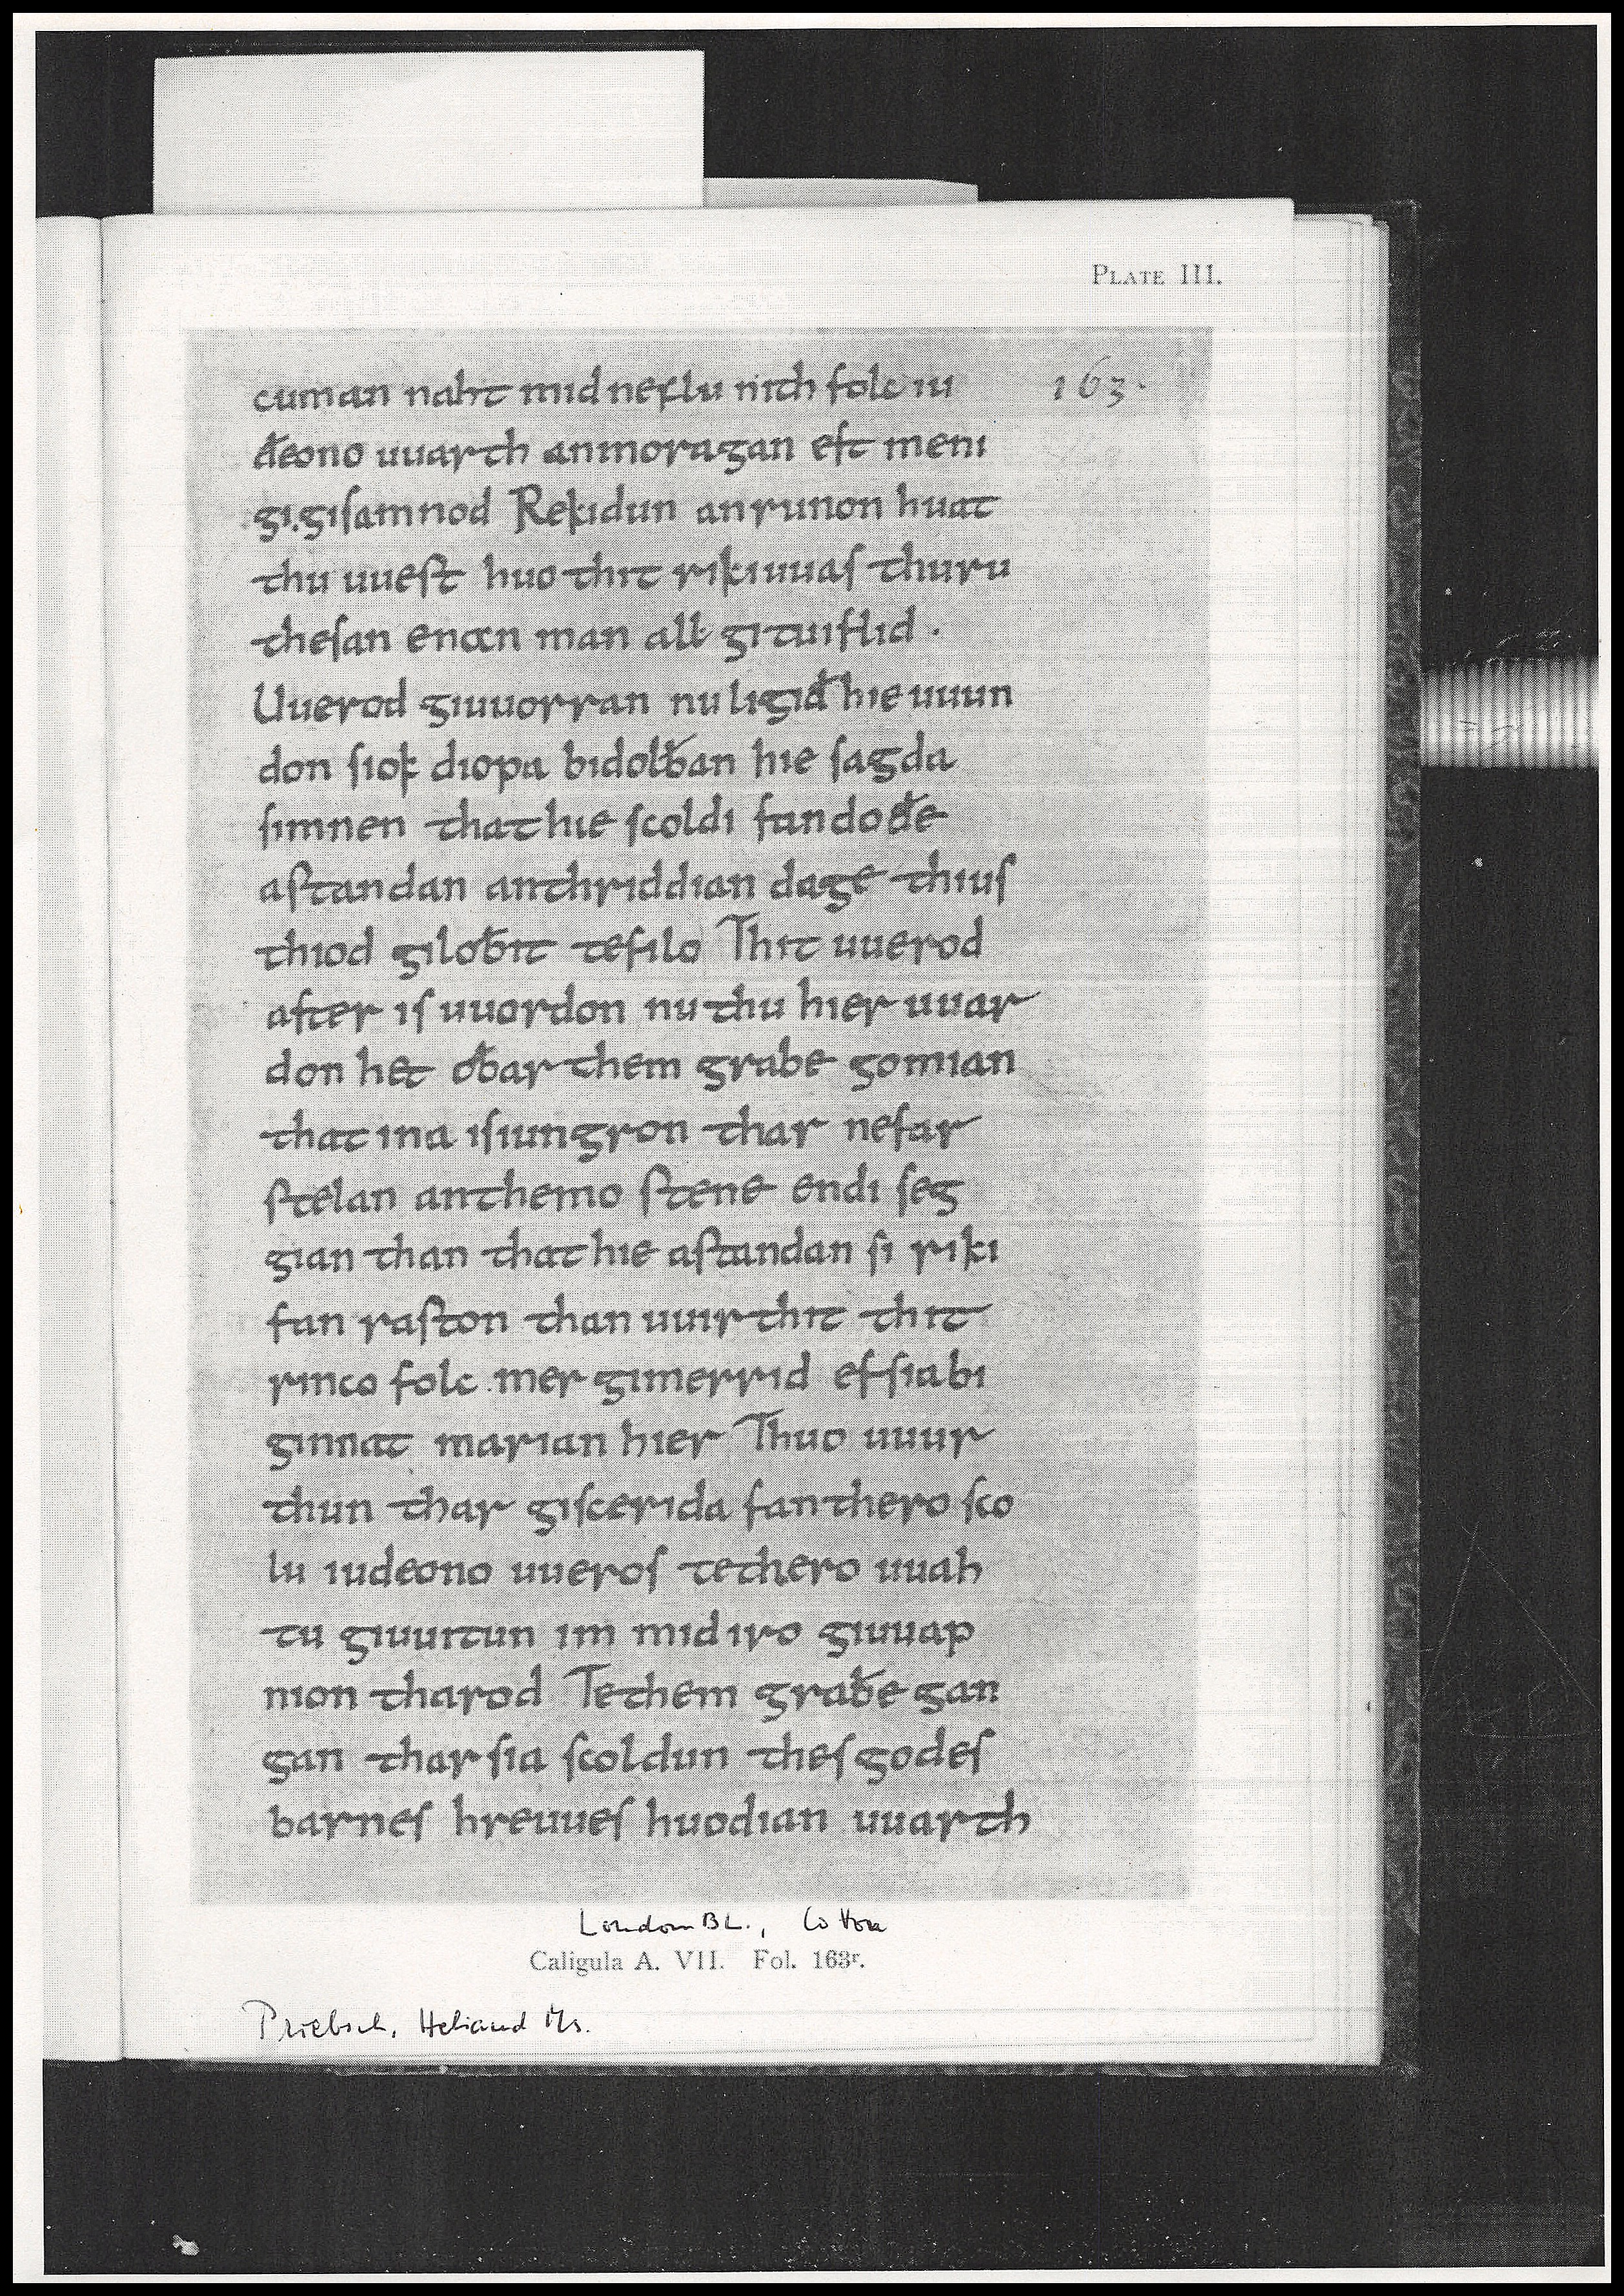 PLATE III.
cuman naht mid neflu nith folc iu
163.
đeono uuarth anmoragan eft meni
gi.gisamnod Rekidun anrunon huat
thu uuest huo thit rikiuuas thuru
thesan enan man all gituiflid .
Uuerod giuuorran nu ligid hie uuun
don siok diopa bidolƀan hie sagda
simnen that hie scoldi fan dođe
astandan anthriddian dage thius
thiod giloƀit tefilo Thit uuerod
after is uuordon nu thu hier uuar
don het oƀar them grabe gomian
that ina isiungron thar nefar
stelan anthemo stene endi seg
gian than that hie astandan si riki
fan raston than uuirthit thit
rinco folc mer gimerrid ef sia bi
ginnat marian hier Thuo uuur
thun thar giscerida fan thero sco
lu iudeono uueros te thero uuah
tu giuuitun im mid iro giuuap
nion tharod Te them graƀe gan
gan thar sia scoldun thes godes
barnes hreuues huodian uuarth
London BL., Cotton
Caligula A. VII. Fol. 163r.
Priebsch, Heliand Ms.